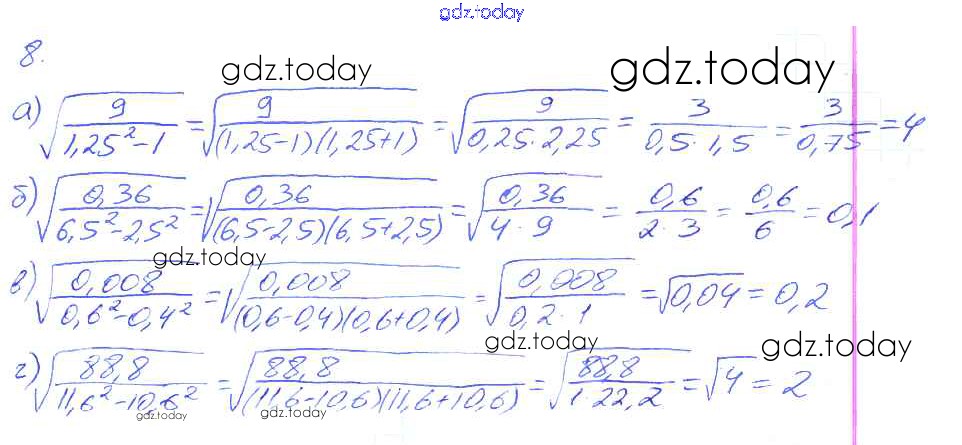 gdz.today
8.
gdz.today gdz.today
а) √(9/(1,25²-1)) = √(9/((1,25-1)(1,25+1))) = √(9/(0,25·2,25)) = 3/(0,5·1,5) = 3/0,75 = 4
б) √(0,36/(6,5²-2,5²)) = √(0,36/((6,5-2,5)(6,5+2,5))) = √(0,36/(4·9)) = 0,6/(2·3) = 0,6/6 = 0,1
gdz.today
в) √(0,008/(0,6²-0,4²)) = √(0,008/((0,6-0,4)(0,6+0,4))) = √(0,008/(0,2·1)) = √0,04 = 0,2
gdz.today gdz.today
г) √(88,8/(11,6²-10,6²)) = √(88,8/((11,6-10,6)(11,6+10,6))) = √(88,8/(1·22,2)) = √4 = 2
gdz.today gdz.today